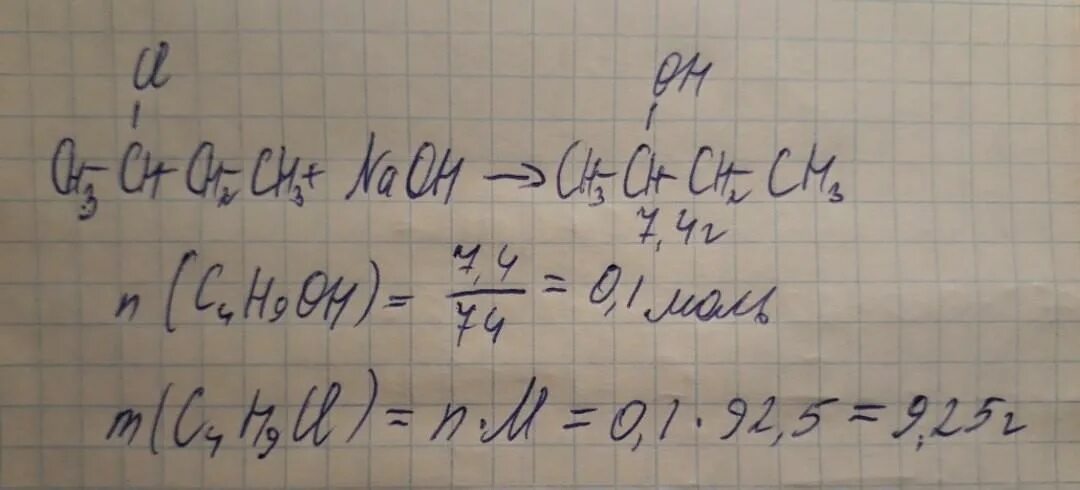 Cl OH
CH3-CH-CH2-CH3 + NaOH → CH3-CH-CH2-CH3
7,4г
n(C4H9OH) = 7,4/74 = 0,1 моль
m(C4H9Cl) = n·M = 0,1·92,5 = 9,25г